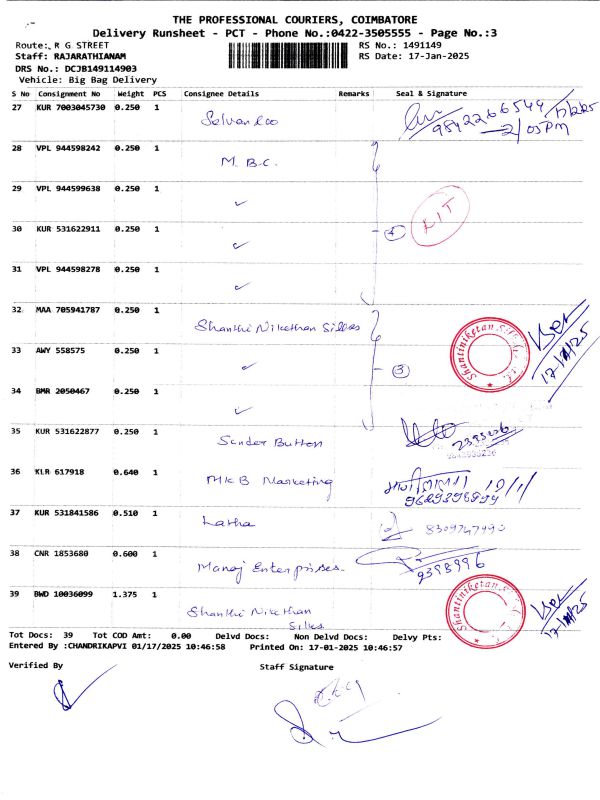 THE PROFESSIONAL COURIERS, COIMBATORE
Delivery Runsheet - PCT - Phone No.:0422-3505555 - Page No.:3
Route: R G STREET
Staff: RAJARATHIANAM
DRS No.: DCJB149114903
Vehicle: Big Bag Delivery
RS No.: 1491149
RS Date: 17-Jan-2025
S No Consignment No Weight PCS Consignee Details Remarks Seal & Signature
27 KUR 7003045730 0.250 1 9842266544
2/03PM
28 VPL 944598242 0.250 1 M.B.C.
29 VPL 944599638 0.250 1 ✓
30 KUR 531622911 0.250 1 ✓ 4
31 VPL 944598278 0.250 1 ✓
32 MAA 705941787 0.250 1 Shanthi Nikethan Silks
33 AWY 558575 0.250 1 ✓ 3 17/1/25
34 BMR 2050467 0.250 1 ✓
35 KUR 531622877 0.250 1 Sender Button
36 KLR 617918 0.640 1 MKB Marketing
37 KUR 531841586 0.510 1 Latha
38 CNR 1853680 0.600 1 Manoj Enterprises.
39 BWD 10036099 1.375 1 Shanthi Nikethan
Silks 17/1/25
Tot Docs: 39 Tot COD Amt: 0.00 Delvd Docs: Non Delvd Docs: Delvy Pts:
Entered By :CHANDRIKAPVI 01/17/2025 10:46:58 Printed On: 17-01-2025 10:46:57
Verified By Staff Signature